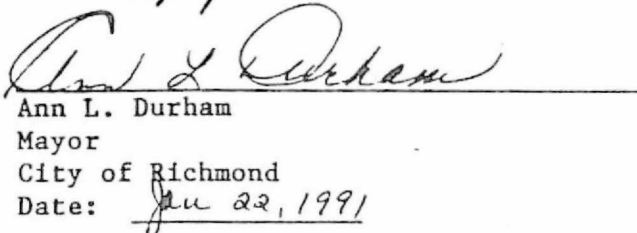 Ann L Durham
Ann L. Durham
Mayor
City of Richmond
Date: Jan 22, 1991